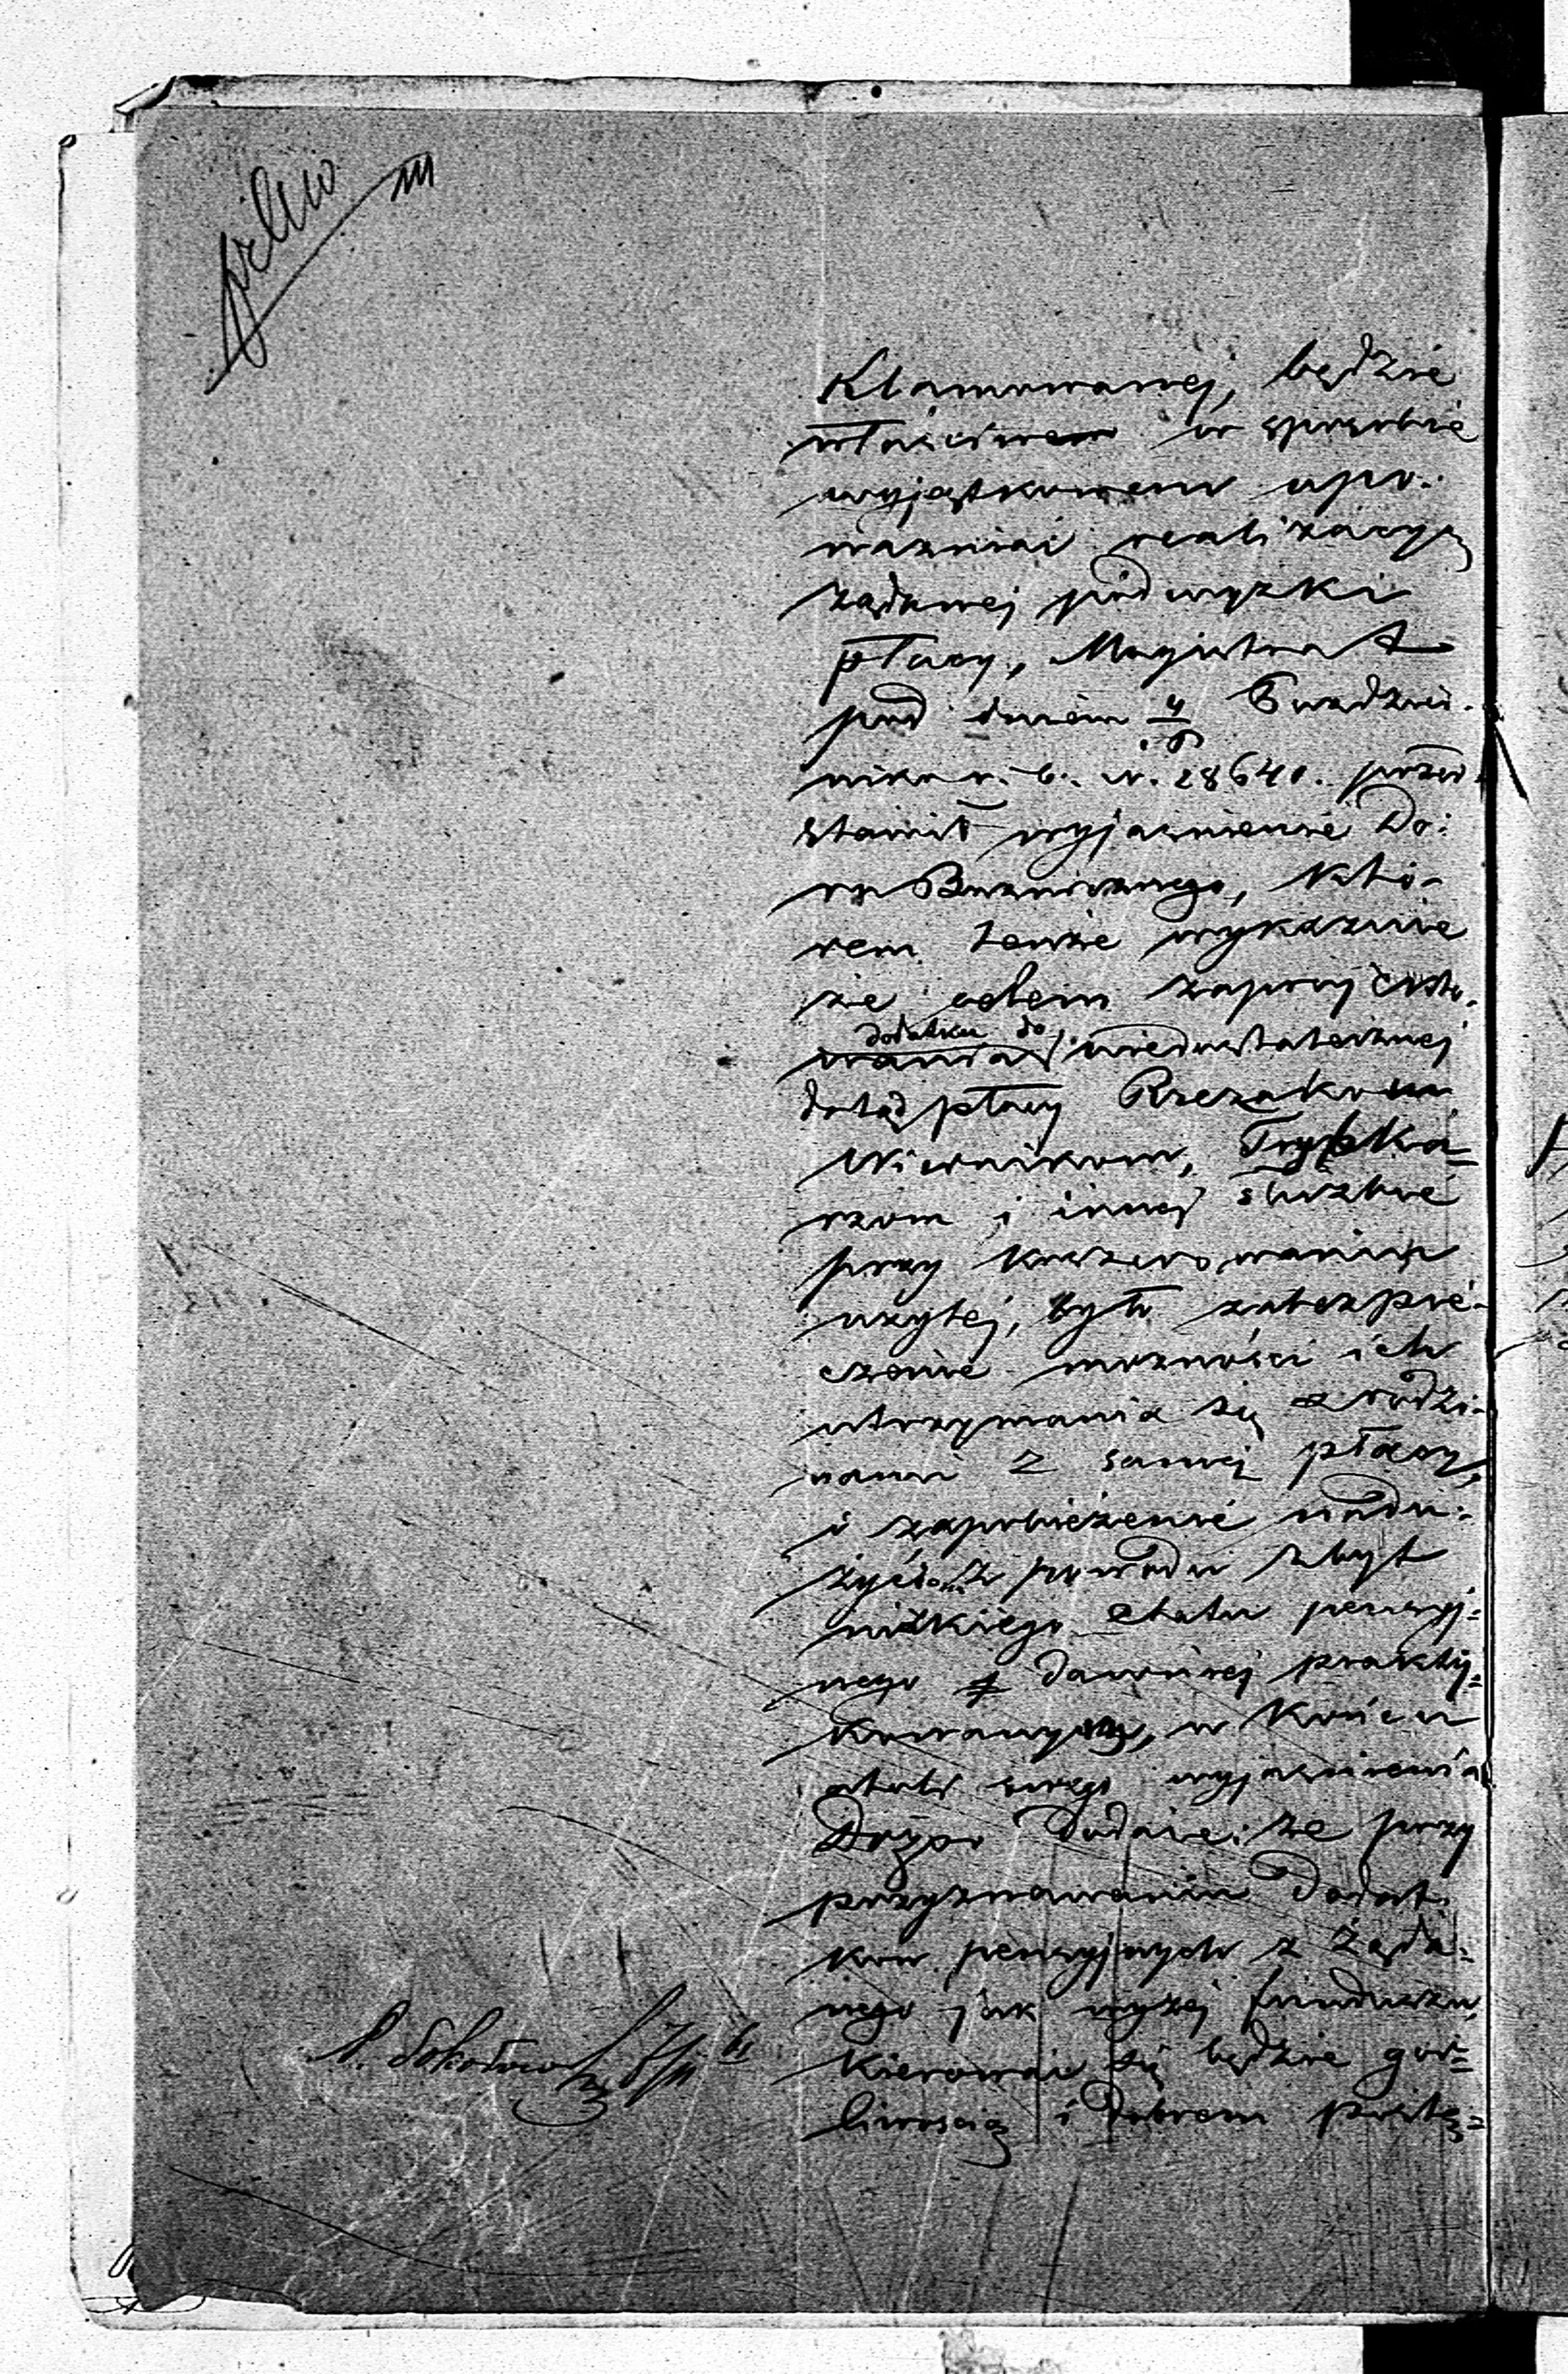 pilno
Klamowanej, będzie
właściwem w sposobie
wyjątkowem upo-
ważniać realizacyą
żądanej podwyżki
płacy, Magistrat
pod dniem 4/ Paździer-
nika r. b. N. 28640. przed-
stawił wyjaśnienie Do-
zoru Bożniczego, któ-
rem tenże wykazuie
że celem zaprojekto-
wania dodatku do niedostatecznej
dotąd płacy Rzezakom
Wiernikom, Trybka-
rzom i innej służbie
przy koszerowaniu
użytej, było zabezpie-
czenie możności ich
utrzymania się z rodzi-
nami z samej płacy,
i zapobieżenie nadu-
życiom z powodu zbyt
nizkiego etatu pensyj-
nego dawniej prakty-
kowanym, w końcu
swego wyjaśnienia
Dozór dodaie: że przy
przyznawaniu dodat-
ków pensyjnych z żąda-
nego jak wyżej funduszu,
kierować się będzie gor-
liwością i dobrem postę-